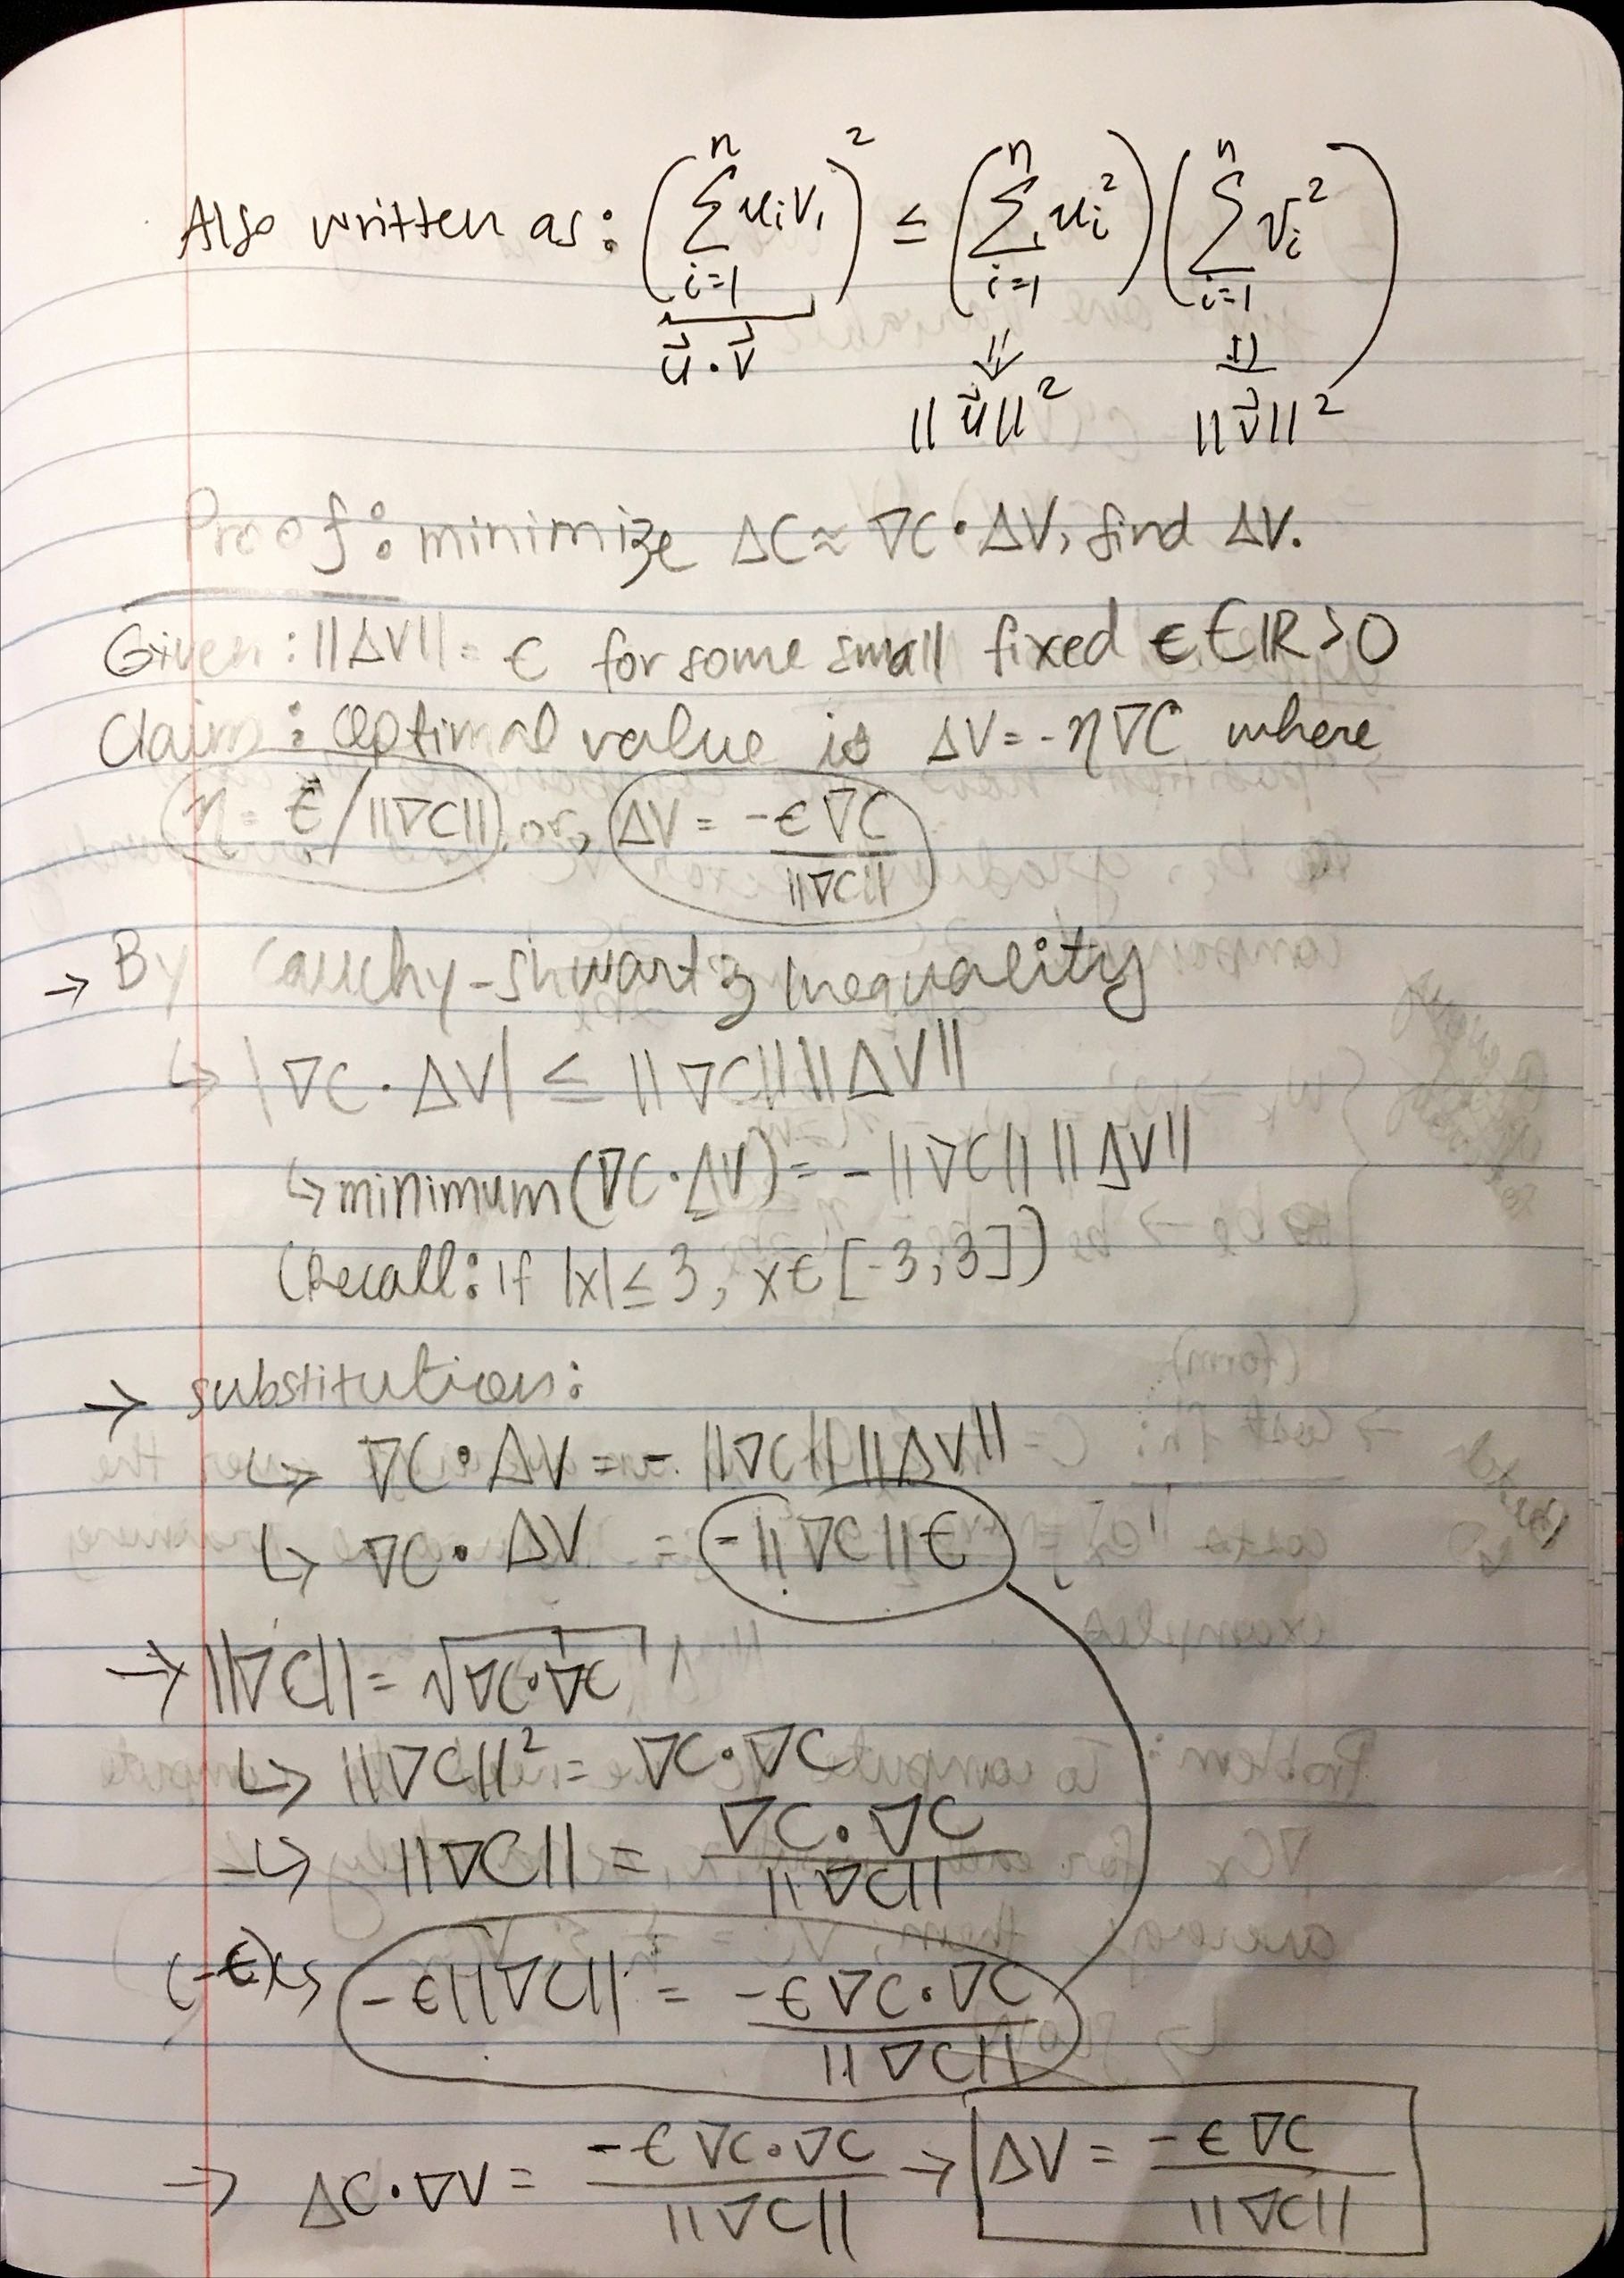 Also written as: (∑ᵢ₌₁ⁿ uᵢvᵢ)² ≤ (∑ᵢ₌₁ⁿ uᵢ²)(∑ᵢ₌₁ⁿ vᵢ²)
u⃗·v⃗ ||u⃗||² ||v⃗||²
Proof: minimize ΔC ≈ ∇C·ΔV, find ΔV.
Given: ||ΔV|| = ϵ for some small fixed ϵ ∈ ℝ > 0
Claim: optimal value is ΔV = -η∇C where
η = ϵ/||∇C|| or, ΔV = -ϵ∇C/||∇C||
→ By Cauchy-Shwartz Inequality
↳ |∇C·ΔV| ≤ ||∇C|| ||ΔV||
↳ minimum(∇C·ΔV) = -||∇C|| ||ΔV||
(Recall: if |x| ≤ 3, x ∈ [-3, 3])
→ substitution:
↳ ∇C·ΔV = - ||∇C|| ||ΔV||
↳ ∇C·ΔV = -||∇C||ϵ
→ ||∇C|| = √∇C·∇C
↳ ||∇C||² = ∇C·∇C
↳ ||∇C|| = ∇C·∇C/||∇C||
(-ϵ)↳ -ϵ||∇C|| = -ϵ∇C·∇C/||∇C||
→ ΔC·∇V = -ϵ∇C·∇C/||∇C|| → ΔV = -ϵ∇C/||∇C||